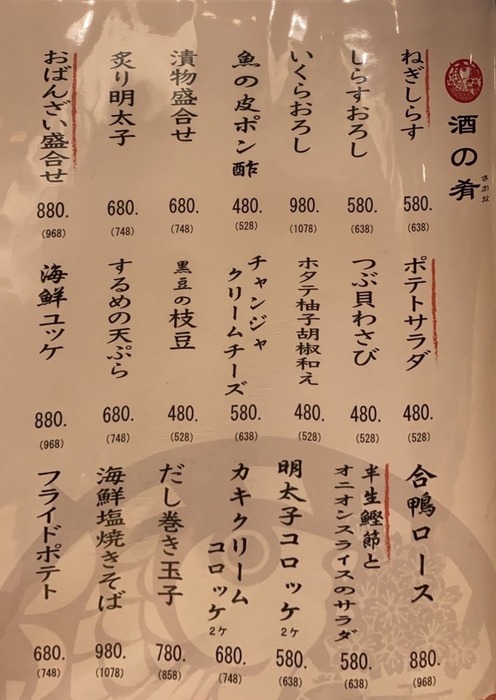 酒の肴
さかな
ねぎしらす
580.
(638)
しらすおろし
580.
(638)
いくらおろし
980.
(1078)
魚の皮ポン酢
480.
(528)
漬物盛合せ
680.
(748)
炙り明太子
680.
(748)
おばんざい盛合せ
880.
(968)
ポテトサラダ
480.
(528)
つぶ貝わさび
480.
(528)
ホタテ柚子胡椒和え
480.
(528)
チャンジャ
クリームチーズ
580.
(638)
黒豆の枝豆
480.
(528)
するめの天ぷら
680.
(748)
海鮮ユッケ
880.
(968)
合鴨ロース
880.
(968)
半生鰹節と
オニオンスライスのサラダ
580.
(638)
明太子コロッケ2ケ
580.
(638)
カキクリーム
コロッケ2ケ
680.
(748)
だし巻き玉子
780.
(858)
海鮮塩焼きそば
980.
(1078)
フライドポテト
680.
(748)